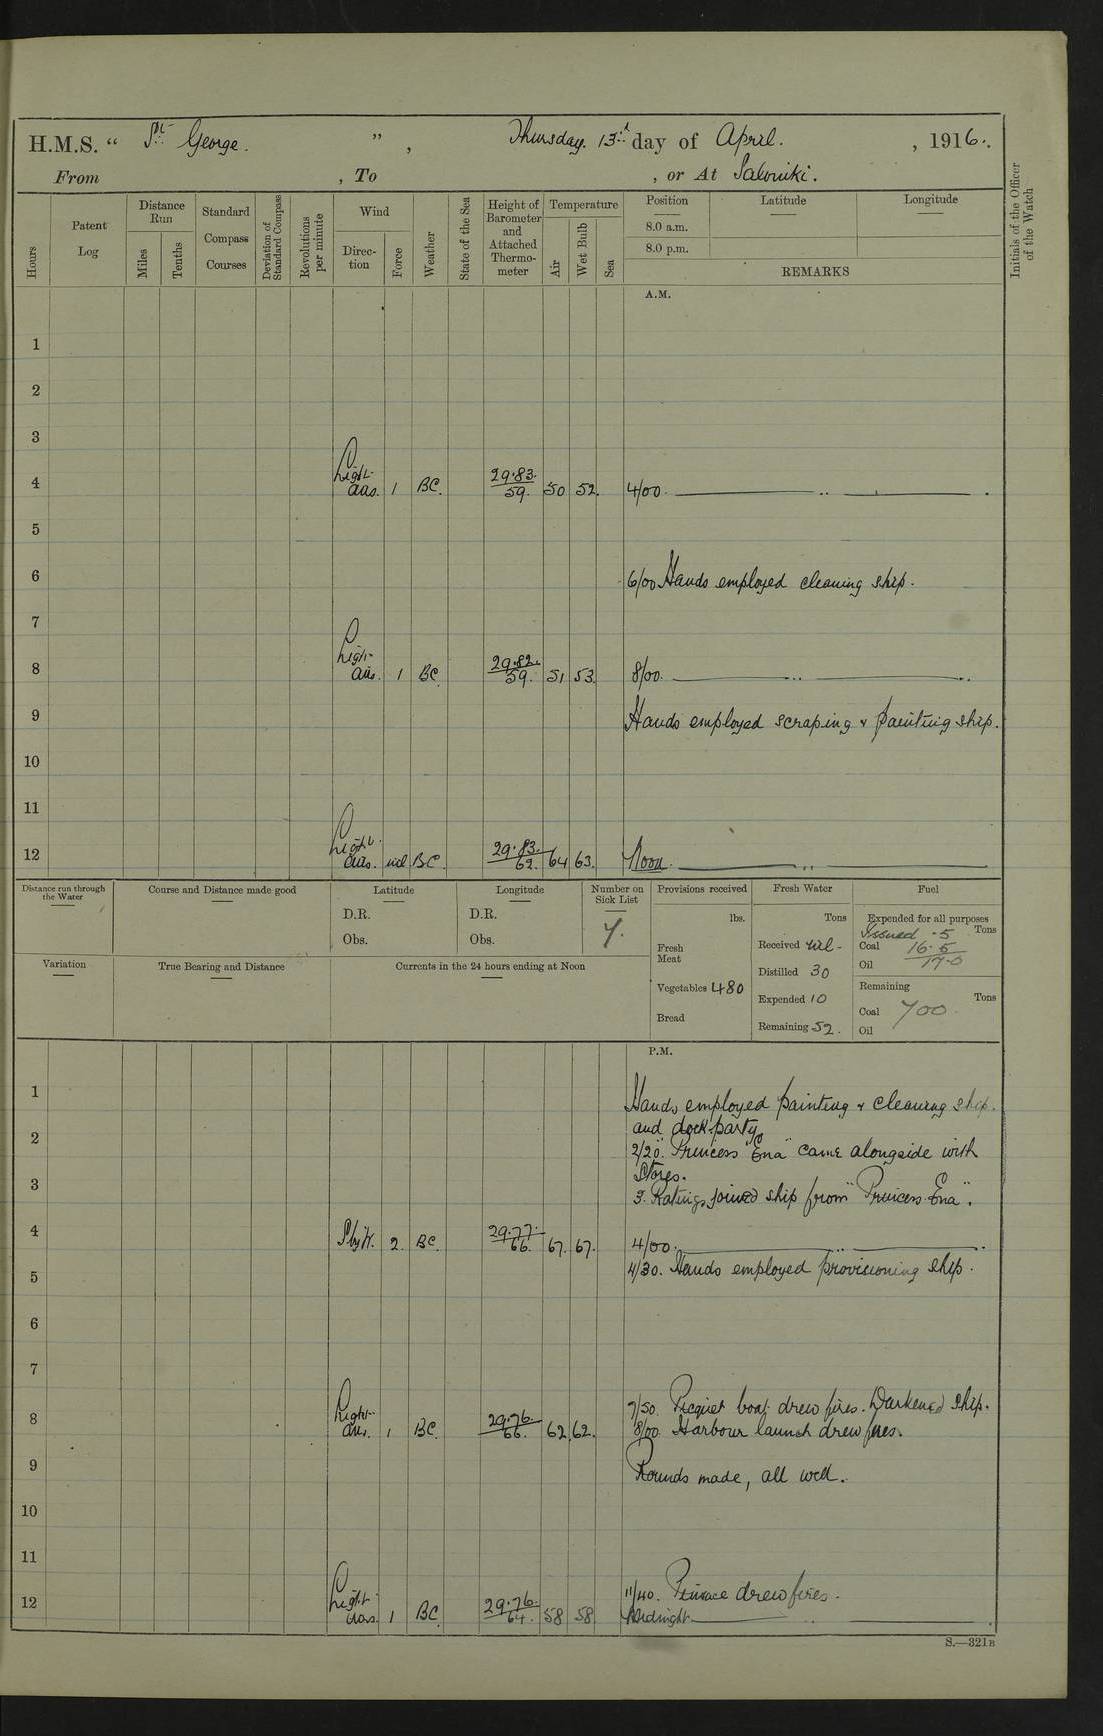 H.M.S. “ St George. ”, Thursday. 13th day of April. , 1916.
From , To , or At Saloniki.
Hours
Patent Log
Distance Run
Miles
Tenths
Standard Compass Courses
Deviation of Standard Compass
Revolutions per minute
Wind
Direction
Force
Weather
State of the Sea
Height of Barometer and Attached Thermometer
Temperature
Air
Wet Bulb
Sea
Position
Latitude
Longitude
8.0 a.m.
8.0 p.m.
REMARKS
Initials of the Officer of the Watch
A.M.
1
2
3
4 Light aas. 1 BC. 29.83. 59. 50 52. 4/00.
5
6 6/00 Hands employed cleaning ship.
7
8 Light airs. 1 BC 29.82. 59. 51 53. 8/00.
9 Hands employed scraping & painting ship.
10
11
12 Light aas. nil BC. 29.83. 62. 64 63. Noon.
Distance run through the Water
Course and Distance made good
Latitude
D.R.
Obs.
Longitude
D.R.
Obs.
Number on Sick List
7.
Provisions received
lbs.
Fresh Meat
Vegetables 480
Bread
Fresh Water
Tons
Received nil -
Distilled 30
Expended 10
Remaining 52.
Fuel
Expended for all purposes
Issued .5 Tons
Coal 16.5
Oil 17.0
Remaining
Tons
Coal 700.
Oil
Variation
True Bearing and Distance
Currents in the 24 hours ending at Noon
P.M.
1 Hands employed painting & cleaning ship.
and dock party.
2 2/20. "Princess Ena" came alongside with
Stores.
3 3. Ratings joined ship from "Princess Ena".
4 S by W. 2. BC. 29.77. 66. 67. 67. 4/00.
4/30. Hands employed provisioning ship.
5
6
7
7/50. Picquet boat drew fires. Darkened ship.
8 Light airs. 1 BC. 29.76. 66. 62. 62. 8/00. Harbour launch drew fires.
9 Rounds made, all well.
10
11
11/40. Pinnace drew fires.
12 Light airs. 1 BC. 29.76. 64. 58 58 Midnight
S.—321B